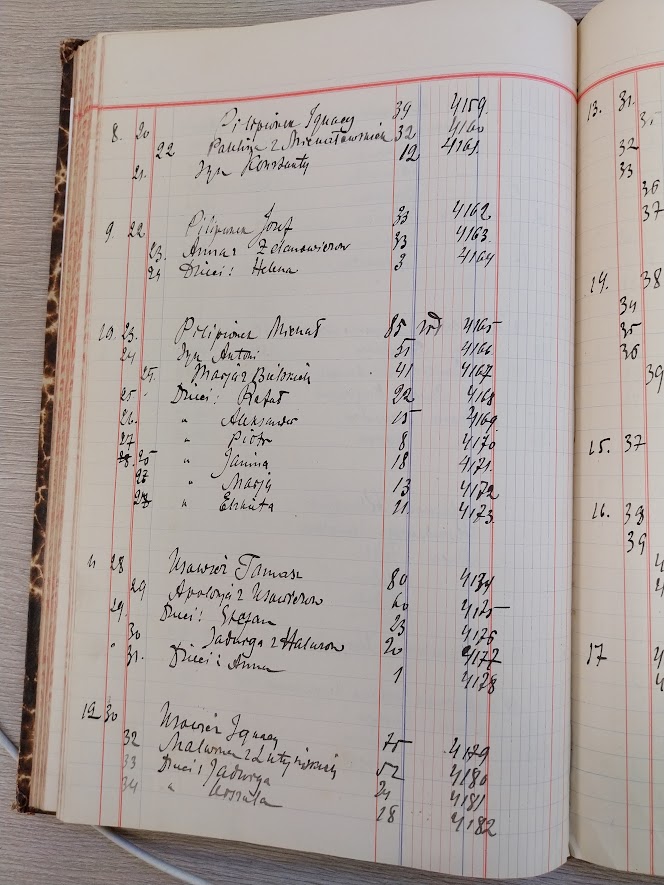 8. 20 Pilipionek Ignacy 39 4159.
22 Paulina z 32 4160
21. Syn Konstanty 12 4161.
9. 22 Pilipionek Józef 33 4162
23. Anna z Zdanowiczów 33 4163.
24 Dzieci: Helena 3 4164
10. 23. Pilipionek Michał 85 4165
24 Syn Antoni 51 4166
25. Marja z 41 4167
25 Dzieci: Rafał 22 4168
26. " Aleksander 15 4169
27 " Piotr 8 4170
28. " Janina 18 4171.
" Marja 13 4172
" Elżbieta 11 4173.
11 28 Usowicz Tomasz 80 4174
29 Apolonja z Usowiczów 60 4175
29. Dzieci: Stefan 23 4176
30 Jadwiga z 20 4177
" 31. Dzieci: Anna 1 4178
12 30 Usowicz Ignacy 75 4179
32 Malwina z 52 4180
33 Dzieci: Jadwiga 21 4181
34 " Urszula 18 4182
13. 31.
32
33
36
37
14. 38
34
35
36
39
15. 37
16. 38
39
17